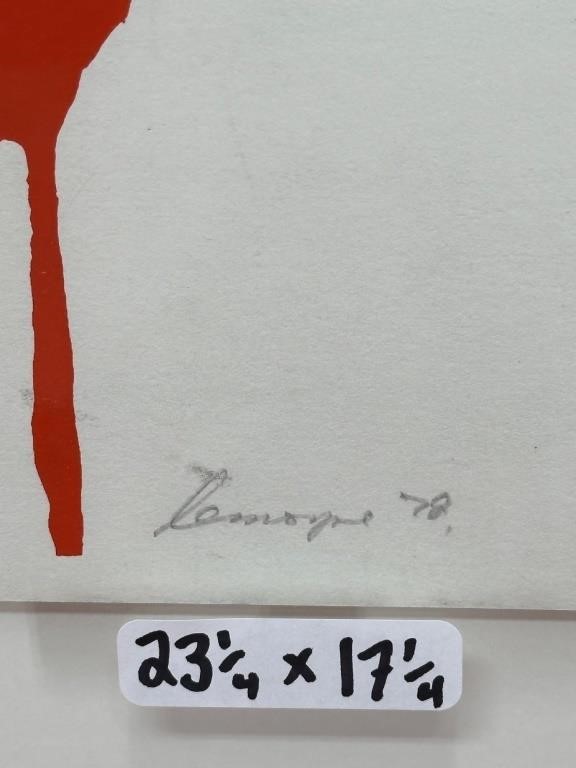 Lemoyne '78.
23 1/4 x 17 1/4